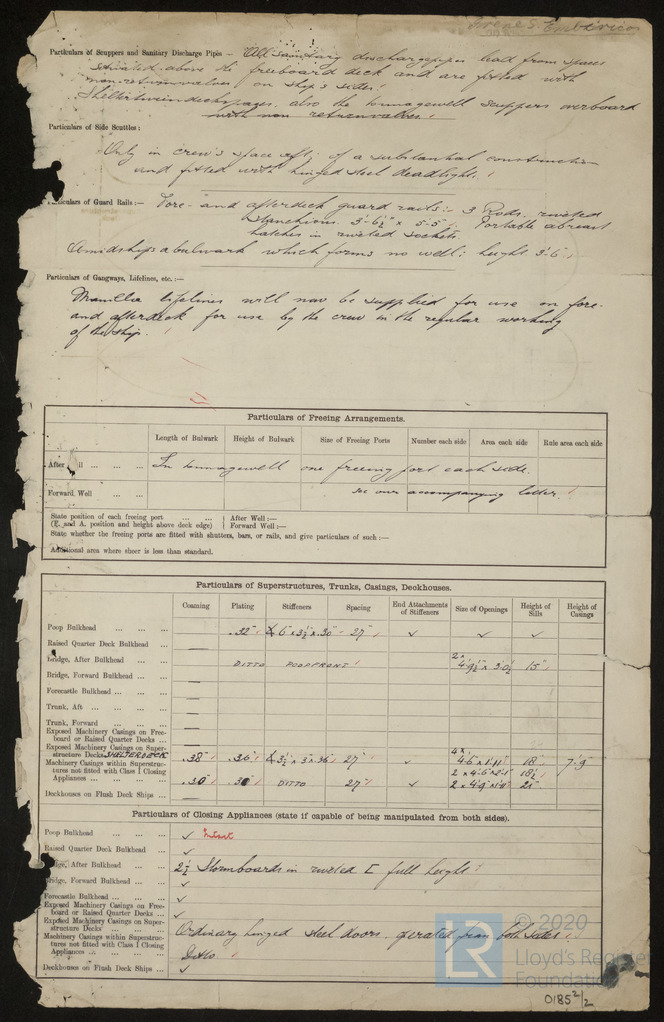 Irene S. Embiricos
Particulars of Scuppers and Sanitary Discharge Pipes — All sanitary discharge pipes lead from spaces
situated above the freeboard deck and are fitted with
non return valves on ship's sides.
Shelter tween deck spaces also the tonnage well scuppers overboard
with non return valves.
Particulars of Side Scuttles:
Only in crew's space aft; of a substantial construction
and fitted with hinged steel deadlights.
Particulars of Guard Rails:— Fore- and afterdeck guard rails:- 3 Rods. riveted
Stanchions. 3'-6½" x 5'-5". Portable abreast
hatches in riveted sockets
Amidships a bulwark which forms no well; height 3'-6"
Particulars of Gangways, Lifelines, etc.:—
Manilla lifelines will now be supplied for use on fore-
and afterdeck for use by the crew in the regular working
of the ship.
Particulars of Freeing Arrangements.
Length of Bulwark Height of Bulwark Size of Freeing Ports Number each side Area each side Rule area each side
After Well ... ... ... In tonnagewell one freeing port each side.
Forward Well ... ... see our accompanying letter.
State position of each freeing port ... ... ... After Well:—
(F. and A. position and height above deck edge) Forward Well:—
State whether the freeing ports are fitted with shutters, bars, or rails, and give particulars of such:—
Additional area where sheer is less than standard.
Particulars of Superstructures, Trunks, Casings, Deckhouses.
Coaming Plating Stiffeners Spacing End Attachments of Stiffeners Size of Openings Height of Sills Height of Casings
Poop Bulkhead ... ... ... — .32" 6 x 3½ x .30" 27" ✓ ✓ ✓
Raised Quarter Deck Bulkhead ... —
Bridge, After Bulkhead ... ... DITTO POOPFRONT 2 x 4'9½" x 3'0½ 15"
Bridge, Forward Bulkhead ... ... —
Forecastle Bulkhead ... ... ... —
Trunk, Aft ... ... ... —
Trunk, Forward ... ... ... —
Exposed Machinery Casings on Freeboard or Raised Quarter Decks ... —
Exposed Machinery Casings on Superstructure Decks SHELTERDECK .38" .36" 3½ x 3" x .36" 27" ✓ 4 x 4'6 x 1'11" 18" 7'-9"
Machinery Casings within Superstructures not fitted with Class I Closing Appliances ... ... ... .30" .30" DITTO 27" ✓ 2 x 4'6 x 2'1" 18½"
2 x 4'9 x 1'11" 21"
Deckhouses on Flush Deck Ships ...
Particulars of Closing Appliances (state if capable of being manipulated from both sides).
Poop Bulkhead ... ... ... ✓ Intact
Raised Quarter Deck Bulkhead ... ✓
Bridge, After Bulkhead ... ... 2½ Stormboards in riveted [ full height
Bridge, Forward Bulkhead ... ... ✓
Forecastle Bulkhead ... ... ... ✓
Exposed Machinery Casings on Freeboard or Raised Quarter Decks ... ✓
Exposed Machinery Casings on Superstructure Decks ... ... ... Ordinary hinged steel doors operated from both sides
Machinery Casings within Superstructures not fitted with Class I Closing Appliances ... ... ... Ditto
Deckhouses on Flush Deck Ships ... ✓
LR
© 2020
Lloyd's Register
Foundation
0185 2/2